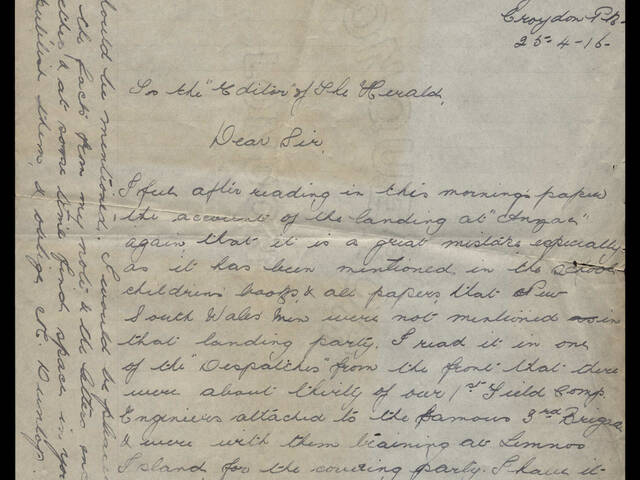 Croydon Pk
25-4-16-
To the "Editor" of The Herald,
Dear Sir,
I feel after reading in this mornings paper
the account of the landing at "Anzac"
again that it is a great mistake especially
as it has been mentioned in the school
childrens books & all papers, that New
South Wales Men were not mentioned in
that landing party. I read it in one
of the "Despatches" from the front that there
were about thirty of our 1st Field Comp
Engineers attached to the famous 3rd Brigade
& were with them training at Limnos
Island for the covering party. I have it
should be mentioned. I would be pleased
the facts from my note & the letters
& at some time find space in
publish them, & oblige, A. Dunlop.